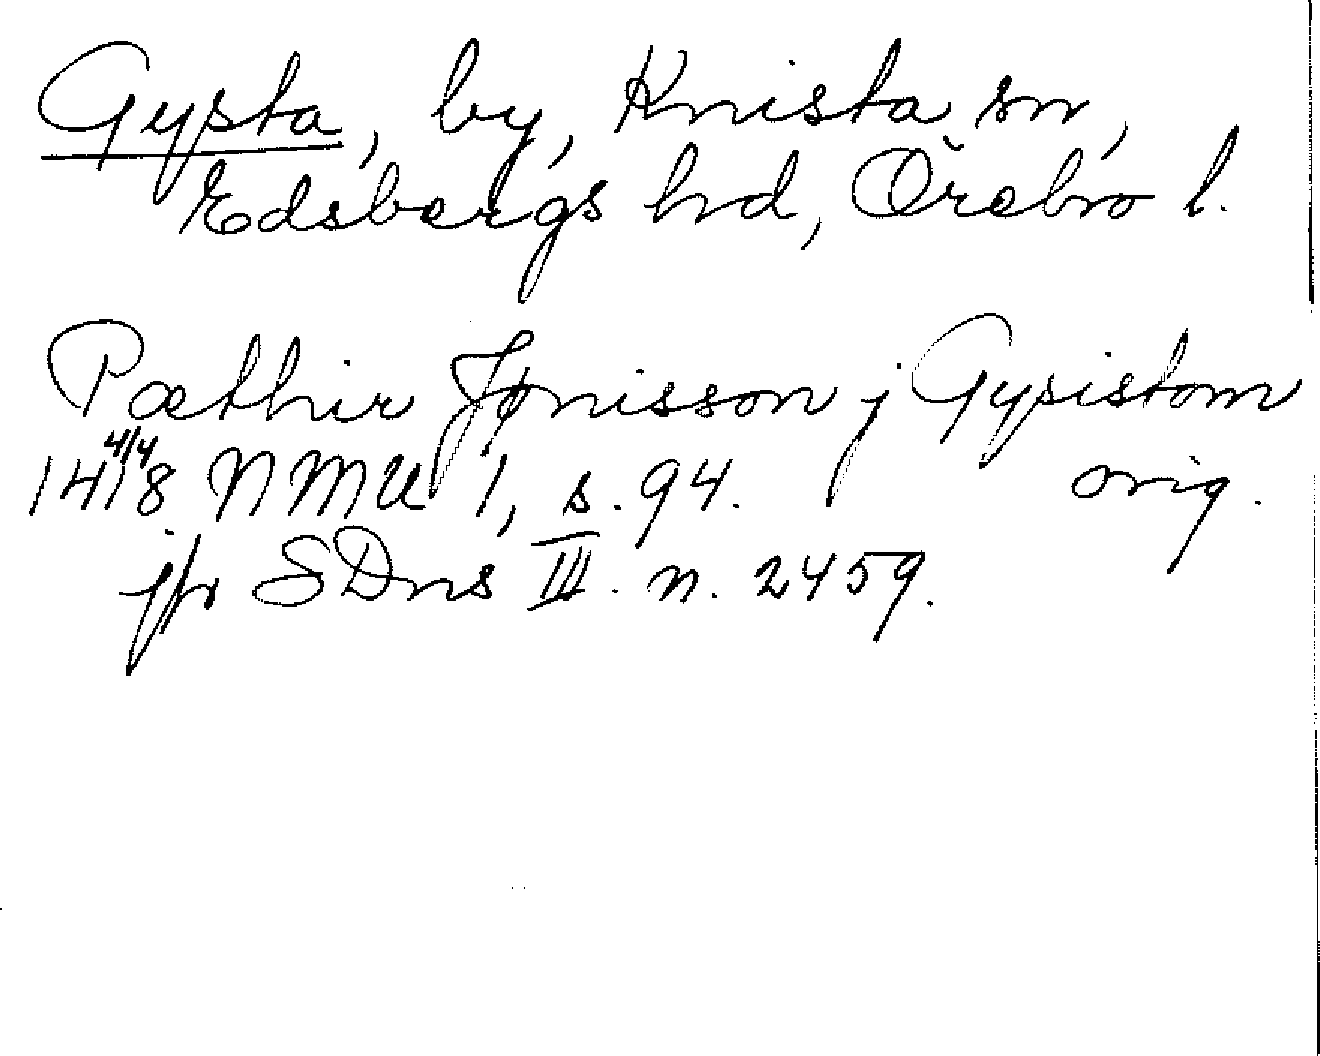 Gypsta, by, Knista sn,
Edsbergs hrd, Örebro l.
Pæthir Jønisson j Gypistom
1418 4/4 NMU 1, s. 94. orig.
jfr SDns III. n. 2459.